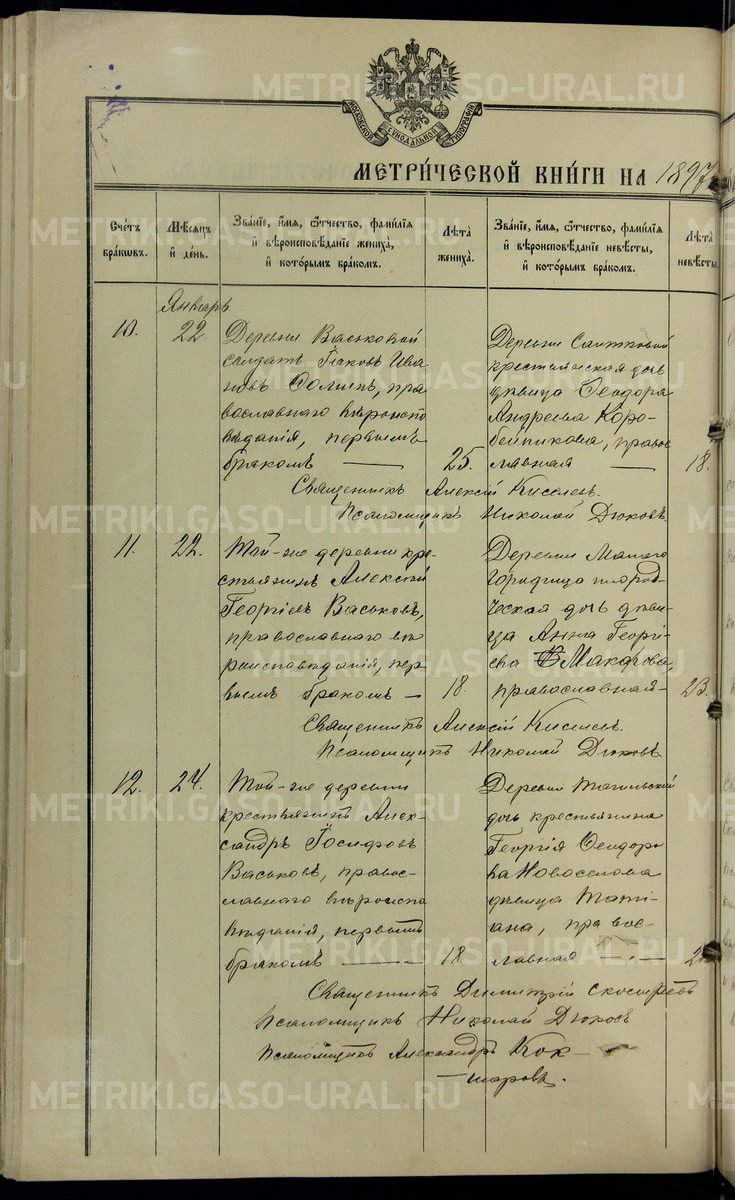 МОСКОВСКОЙ СѴНОДАЛЬНОЙ ТИПОГРАФІИ
МЕТРИ́ЧЕСКОЙ КНИ́ГИ НА 1897
Сче́тъ бра́кѡвъ.
Мѣ́сяцъ и҆ де́нь.
Зва́нїе, и҆́мя, ѻ҆́тчество, фами́лїя и҆ вѣроисповѣ́данїе жениха̀, и҆ кото́рымъ бра́комъ.
Лѣ́та жениха̀.
Зва́нїе, и҆́мя, ѻ҆́тчество, фами́лїя и҆ вѣроисповѣ́данїе невѣ́сты, и҆ кото́рымъ бра́комъ.
Лѣ́та невѣ́сты
Январь
10.
22.
Деревни Васьковой
солдатъ Іаковъ Ива
новъ Солинъ, пра
вославнаго вѣроиспо
вѣданія, первымъ
бракомъ
25.
Деревни Саитковой
крестьянская дочь
дѣвица Ѳеодора
Андреева Коро-
бейникова, право
славная
18.
Священникъ Алексій Киселев.
Псаломщикъ Николай Дюковъ
11.
22.
Той-же деревни кре-
стьянинъ Алексій
Георгіевъ Васьковъ,
православнаго вѣ
роисповѣданія, пер
вымъ бракомъ
18.
Деревни Малаго
Городища
дочь дѣви-
ца Анна Георгі-
ева Макарова,
православная
23.
Священникъ Алексій Киселев.
Псаломщикъ Николай Дюковъ
12.
24.
Той-же деревни
крестьянинъ Алек-
сандръ Іосифовъ
Васьковъ, правос-
лавнаго вѣроиспо
вѣданія, первымъ
бракомъ
18.
Деревни Тагильской
дочь крестьянина
Георгія Ѳеодоро
ва Новоселова
дѣвица Тати-
ана, правос-
лавная
Священникъ Димитрій
Псаломщикъ Николай Дюковъ
Псаломщикъ Александръ Кок-
шаровъ.
METRIKI.GASO-URAL.RU